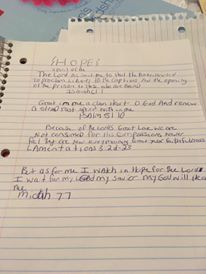 HOPE
The Lord has sent me to bind the brokenhearted
to proclaim liberty to the captives, and the opening
of the prison to those who are bound
Isaiah 61:1
Creat in me a clean heart O God and renew
a stead fast spirit with in me
Psalm 51 10
Because of the Lords Great Love we are
Not consumed for his Compassions never
fail They are new every morning Great is your faithfulness
LAmentations 3 22-23
But as for me I watch in Hope for the Lord
I wait for my God my Savior my God will hear
me
Micah 7 7